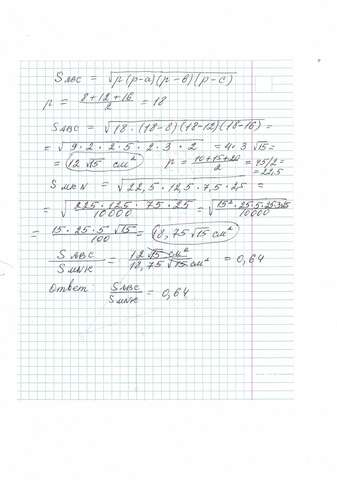 S ABC = √p(p-a)(p-в)(p-c)
p = 8+12+16/2 = 18
S ABC = √18·(18-8)(18-12)(18-16) =
= √9·2·2·5·2·3·2 = 4·3√15 =
= 12√15 см² p = 10+15+20/2 = 45/2 = 22,5
S MKN = √22,5·12,5·7,5·25 =
= √225·125·75·25/10000 = √15²·25·5·25·3·25/10000
= 15·25·5√15/100 = 18,75√15 см²
S ABC/S MNK = 12√15 см²/18,75√15 см² = 0,64
Ответ: S ABC/S MNK = 0,64